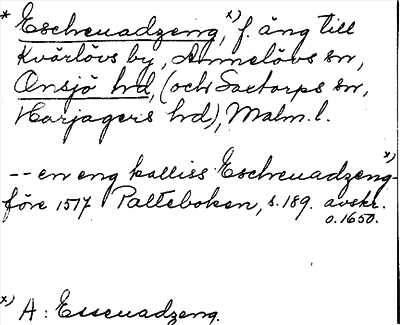 * Escheuadzeng, x) f. äng till
Kvärlövs by, Annelövs sn,
Onsjö hd, (och Saxtorps sn,
Harjagers hd), Malm. l.
-- en eng kalliss Escheuadzeng x)
före 1517 Palteboken, s. 189. avskr.
o. 1650.
x) A: Esseuadzeng.